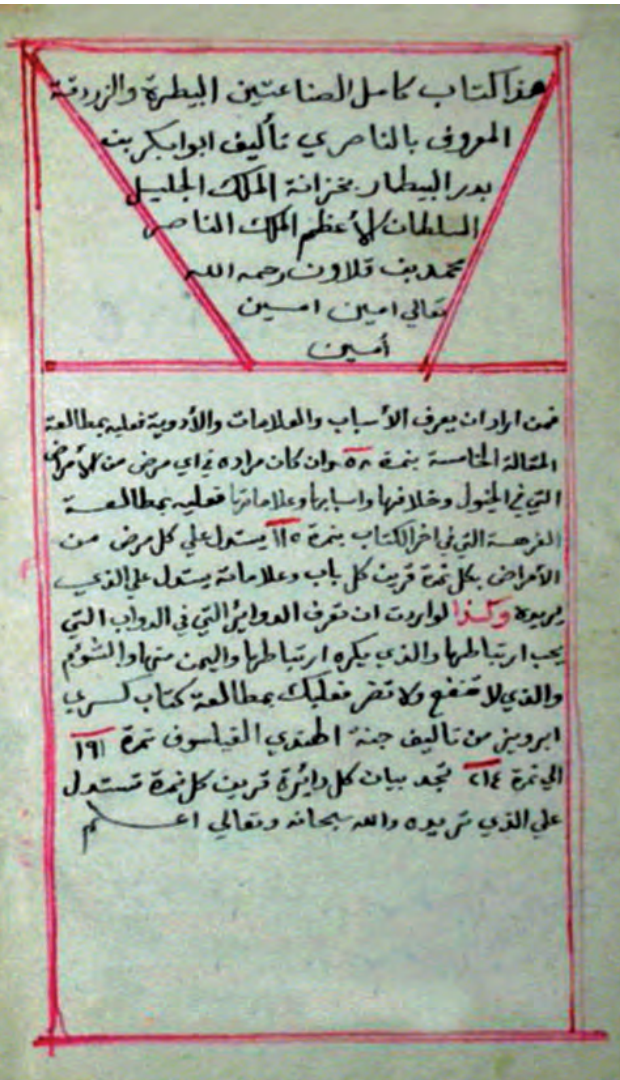 هذا كتاب كامل الصناعتين البيطرة والزردقة
المعروف بالناصري تأليف ابوابكر بن
بدر البيطار بخزانة الملك الجليل
السلطان الأعظم الملك الناصر
محمد بن قلاون رحمه الله
تعالي امين امين
أمين
فمن اراد ان يعرف الأسباب والعلامات والأدوية فعليه بمطالعة
المقالة الخامسة بنمرة ٥٨ وان كان مراده في اي مرض من الأمراض
التي في الخيول وخلافها واسبابها وعلاماتها فعليه بمطالعة
الفرهسة التي في اخر الكتاب بنمرة ١١٥ يستدل علي كل مرض من
الأمراض بكل نمرة قرين كل باب وعلاماته يستدل علي الذي
يريده وكذا لو اردت ان تعرف الدوائر التي في الدواب التي
يحب ارتباطها والذي يكره ارتباطها واليمن منها والشوم
والذي لا تنفع ولا تضر فعليك بمطالعة كتاب كسري
ابرويز من تاليف جنة الهندي الفيلسوف نمرة ١٩١
الي نمرة ٢١٤ تجد بيان كل دائرة قرين كل نمرة تستدل
علي الذي تريده والله سبحانه وتعالي اعلم